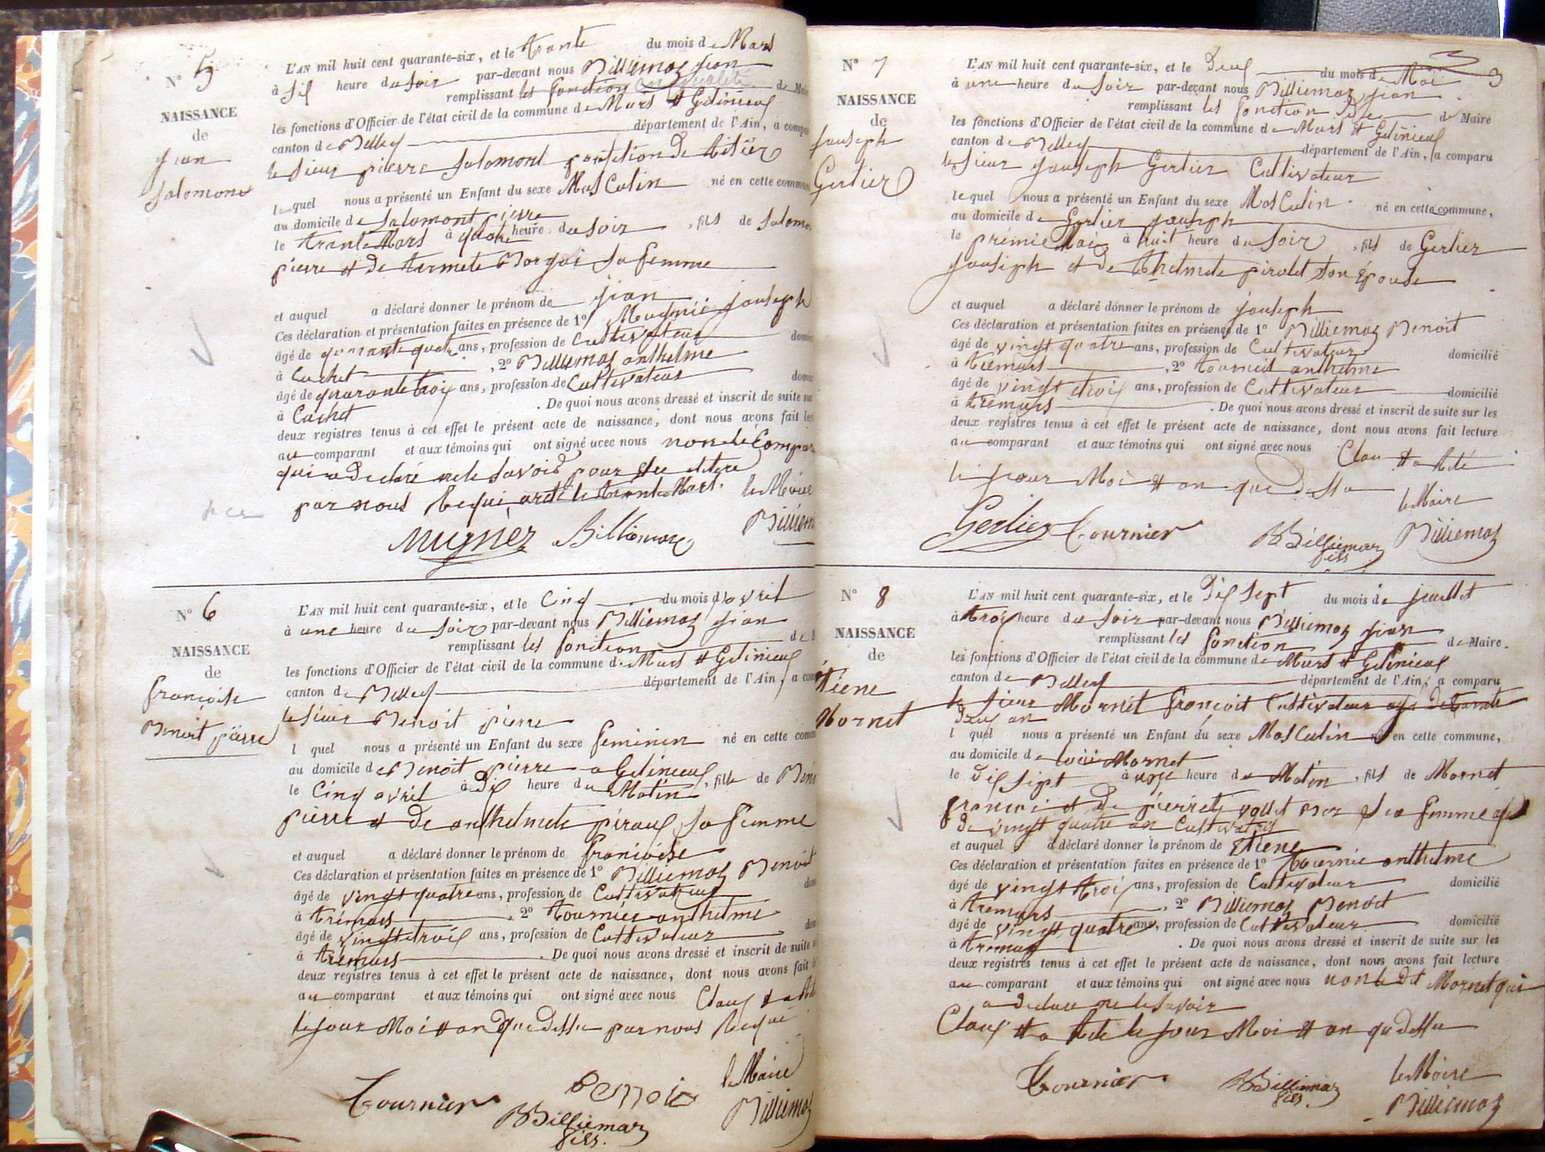 N° 5
NAISSANCE
de
jean
Salomont
L'AN mil huit cent quarante-six, et le trante du mois de Mars
à sis heure du Soir par-devant nous Billiemaz jean
remplissant les fonction de Maire
les fonctions d'Officier de l'état civil de la commune de Murs et Gelinieux
canton de Belley département de l'Ain, a comparu
le Sieur pierre Salomont
lequel nous a présenté un Enfant du sexe Masculin né en cette commune
au domicile de Salomont pierre
le trante Mars à quatre heure du Soir, fils de Salomon
pierre et de Sa femme
et auquel a déclaré donner le prénom de jean
Ces déclaration et présentation faites en présence de 1° Mugnié jauseph
âgé de quarante quatre ans, profession de Cultivateur
à , 2° Billiemaz anthelme
âgé de quarante trois ans, profession de Cultivateur
à . De quoi nous avons dressé et inscrit de suite sur
deux registres tenus à cet effet le présent acte de naissance, dont nous avons fait lec
au comparant et aux témoins qui ont signé avec nous non le Compar
qui a Declaré ne le Savoir
par nous le trante Mars. le Maire
Mugnier Billiemaz Billiemaz
N° 6
NAISSANCE
de
françoise
Benoit pierre
L'AN mil huit cent quarante-six, et le Cinq du mois d'avril
à une heure du Soir par-devant nous Billiemaz jean
remplissant les fonction de
les fonctions d'Officier de l'état civil de la commune de Murs et Gelinieux
canton de Belley département de l'Ain, a com
le Sieur Benoit pierre
l quel nous a présenté un Enfant du sexe feminin né en cette comm
au domicile de Benoit pierre a Gelinieux
le Cinq avril à Dis heure du Matin, fille de Beno
pierre et De anthelmete piraud Sa femme
et auquel a déclaré donner le prénom de françoise
Ces déclaration et présentation faites en présence de 1° Billiemaz Benoit
âgé de vingt quatre ans, profession de Cultivateur
à tremurs , 2° tournier anthelme
âgé de vingt trois ans, profession de Cultivateur
à tremurs . De quoi nous avons dressé et inscrit de suite
deux registres tenus à cet effet le présent acte de naissance, dont nous avons fait
au comparant et aux témoins qui ont signé avec nous Claus et a
le jour Moi et an que dessu par nous
le Maire
Tournier Benoit
BBilliemaz fils. Billiemaz
N° 7
NAISSANCE
de
jauseph
Gerlier
3
L'AN mil huit cent quarante-six, et le Deus du mois de Mai
à une heure du Soir par-devant nous Billiemaz jean
remplissant les fonction de Maire
les fonctions d'Officier de l'état civil de la commune de Murs et Gelinieux
canton de Belley département de l'Ain, a comparu
le Sieur jauseph Gerlier Cultivateur
lequel nous a présenté un Enfant du sexe Masculin né en cette commune,
au domicile de Gerlier jauseph
le premie Mai à huit heure du Soir, fils de Gerlier
jauseph et de thelmete pirolet Son Epouse
et auquel a déclaré donner le prénom de jauseph
Ces déclaration et présentation faites en présence de 1° Billiemaz Benoit
âgé de vingt quatre ans, profession de Cultivateur domicilié
à tremurs , 2° tournié anthelme
âgé de vingt trois ans, profession de Cultivateur domicilié
à tremurs . De quoi nous avons dressé et inscrit de suite sur les
deux registres tenus à cet effet le présent acte de naissance, dont nous avons fait lecture
au comparant et aux témoins qui ont signé avec nous Clau et a
le jour Moi et an que dessu
le Maire
Gerlier Tournier BBilliemaz fils Billiemaz
N° 8
NAISSANCE
de
Etiene
Mornet
L'AN mil huit cent quarante-six, et le Dis Sept du mois de jeuillet
à trois heure du Soir par-devant nous Billiemaz jean
remplissant les fonction de Maire.
les fonctions d'Officier de l'état civil de la commune de Murs et Gelinieux
canton de Belley département de l'Ain, a comparu
le Sieur Mornet françoit Cultivateur agé de trante
Deus an
l quel nous a présenté un Enfant du sexe Masculin né en cette commune,
au domicile de Mornet
le Dis Sept à heure du Matin, fils de Mornet
françoi et De pierrete Sa femme agé
De vingt quatre an Cultivatris
et auquel a déclaré donner le prénom de Etiene
Ces déclaration et présentation faites en présence de 1° tournié anthelme
âgé de vingt troi ans, profession de Cultivateur domicilié
à tremurs , 2° Billiemaz Benoit
âgé de vingt quatre ans, profession de Cultivateur domicilié
à tremurs . De quoi nous avons dressé et inscrit de suite sur les
deux registres tenus à cet effet le présent acte de naissance, dont nous avons fait lecture
au comparant et aux témoins qui ont signé avec nous non le Dt Mornet qui
a declaré ne le Savoir
Claus et a le jour Moi et an que dessu
le Maire
Tournier BBilliemaz fils. Billiemaz